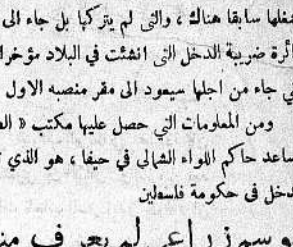 شغلها سابقا هناك ، والتى لم يتركها بل جاء الى
ائرة ضريبة الدخل التى انشئت في البلاد مؤخرا
ي جاء من اجلها سيعود الى مقر منصبه الاول
ومن المعلومات التي حصل عليها مكتب « ال
ساعد حاكم اللواء الشمالي في حيفا ، هو الذي
دخل في حكومة فلسطين
موسم زراعي لم يعرف من